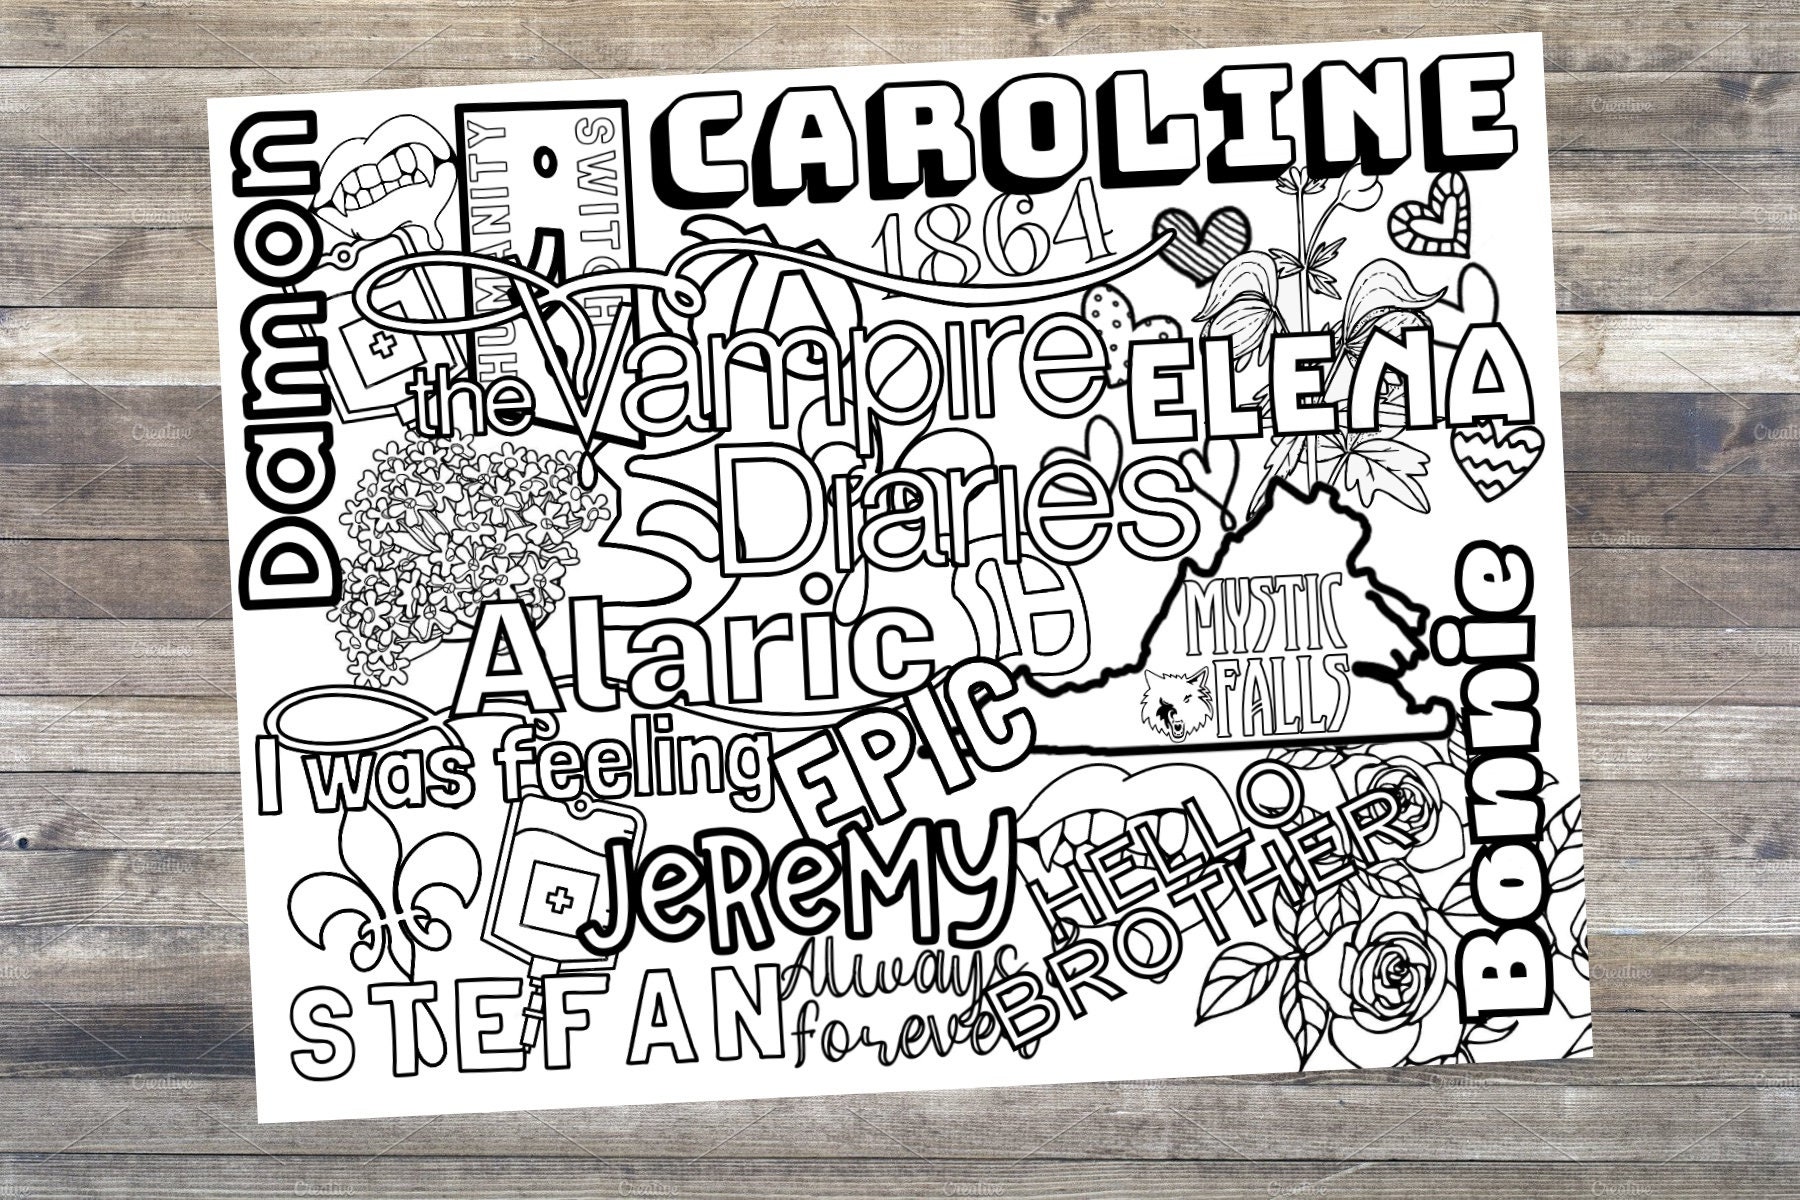 Damon
HUMANITY
SWITCH
CAROLINE
1864
the Vampire
Diaries
ELENA
Alaric
MYSTIC
FALLS
I was feeling
EPIC
JeReMY
HELLO
BROTHER
Bonnie
STEFAN
Always
forever
Creative